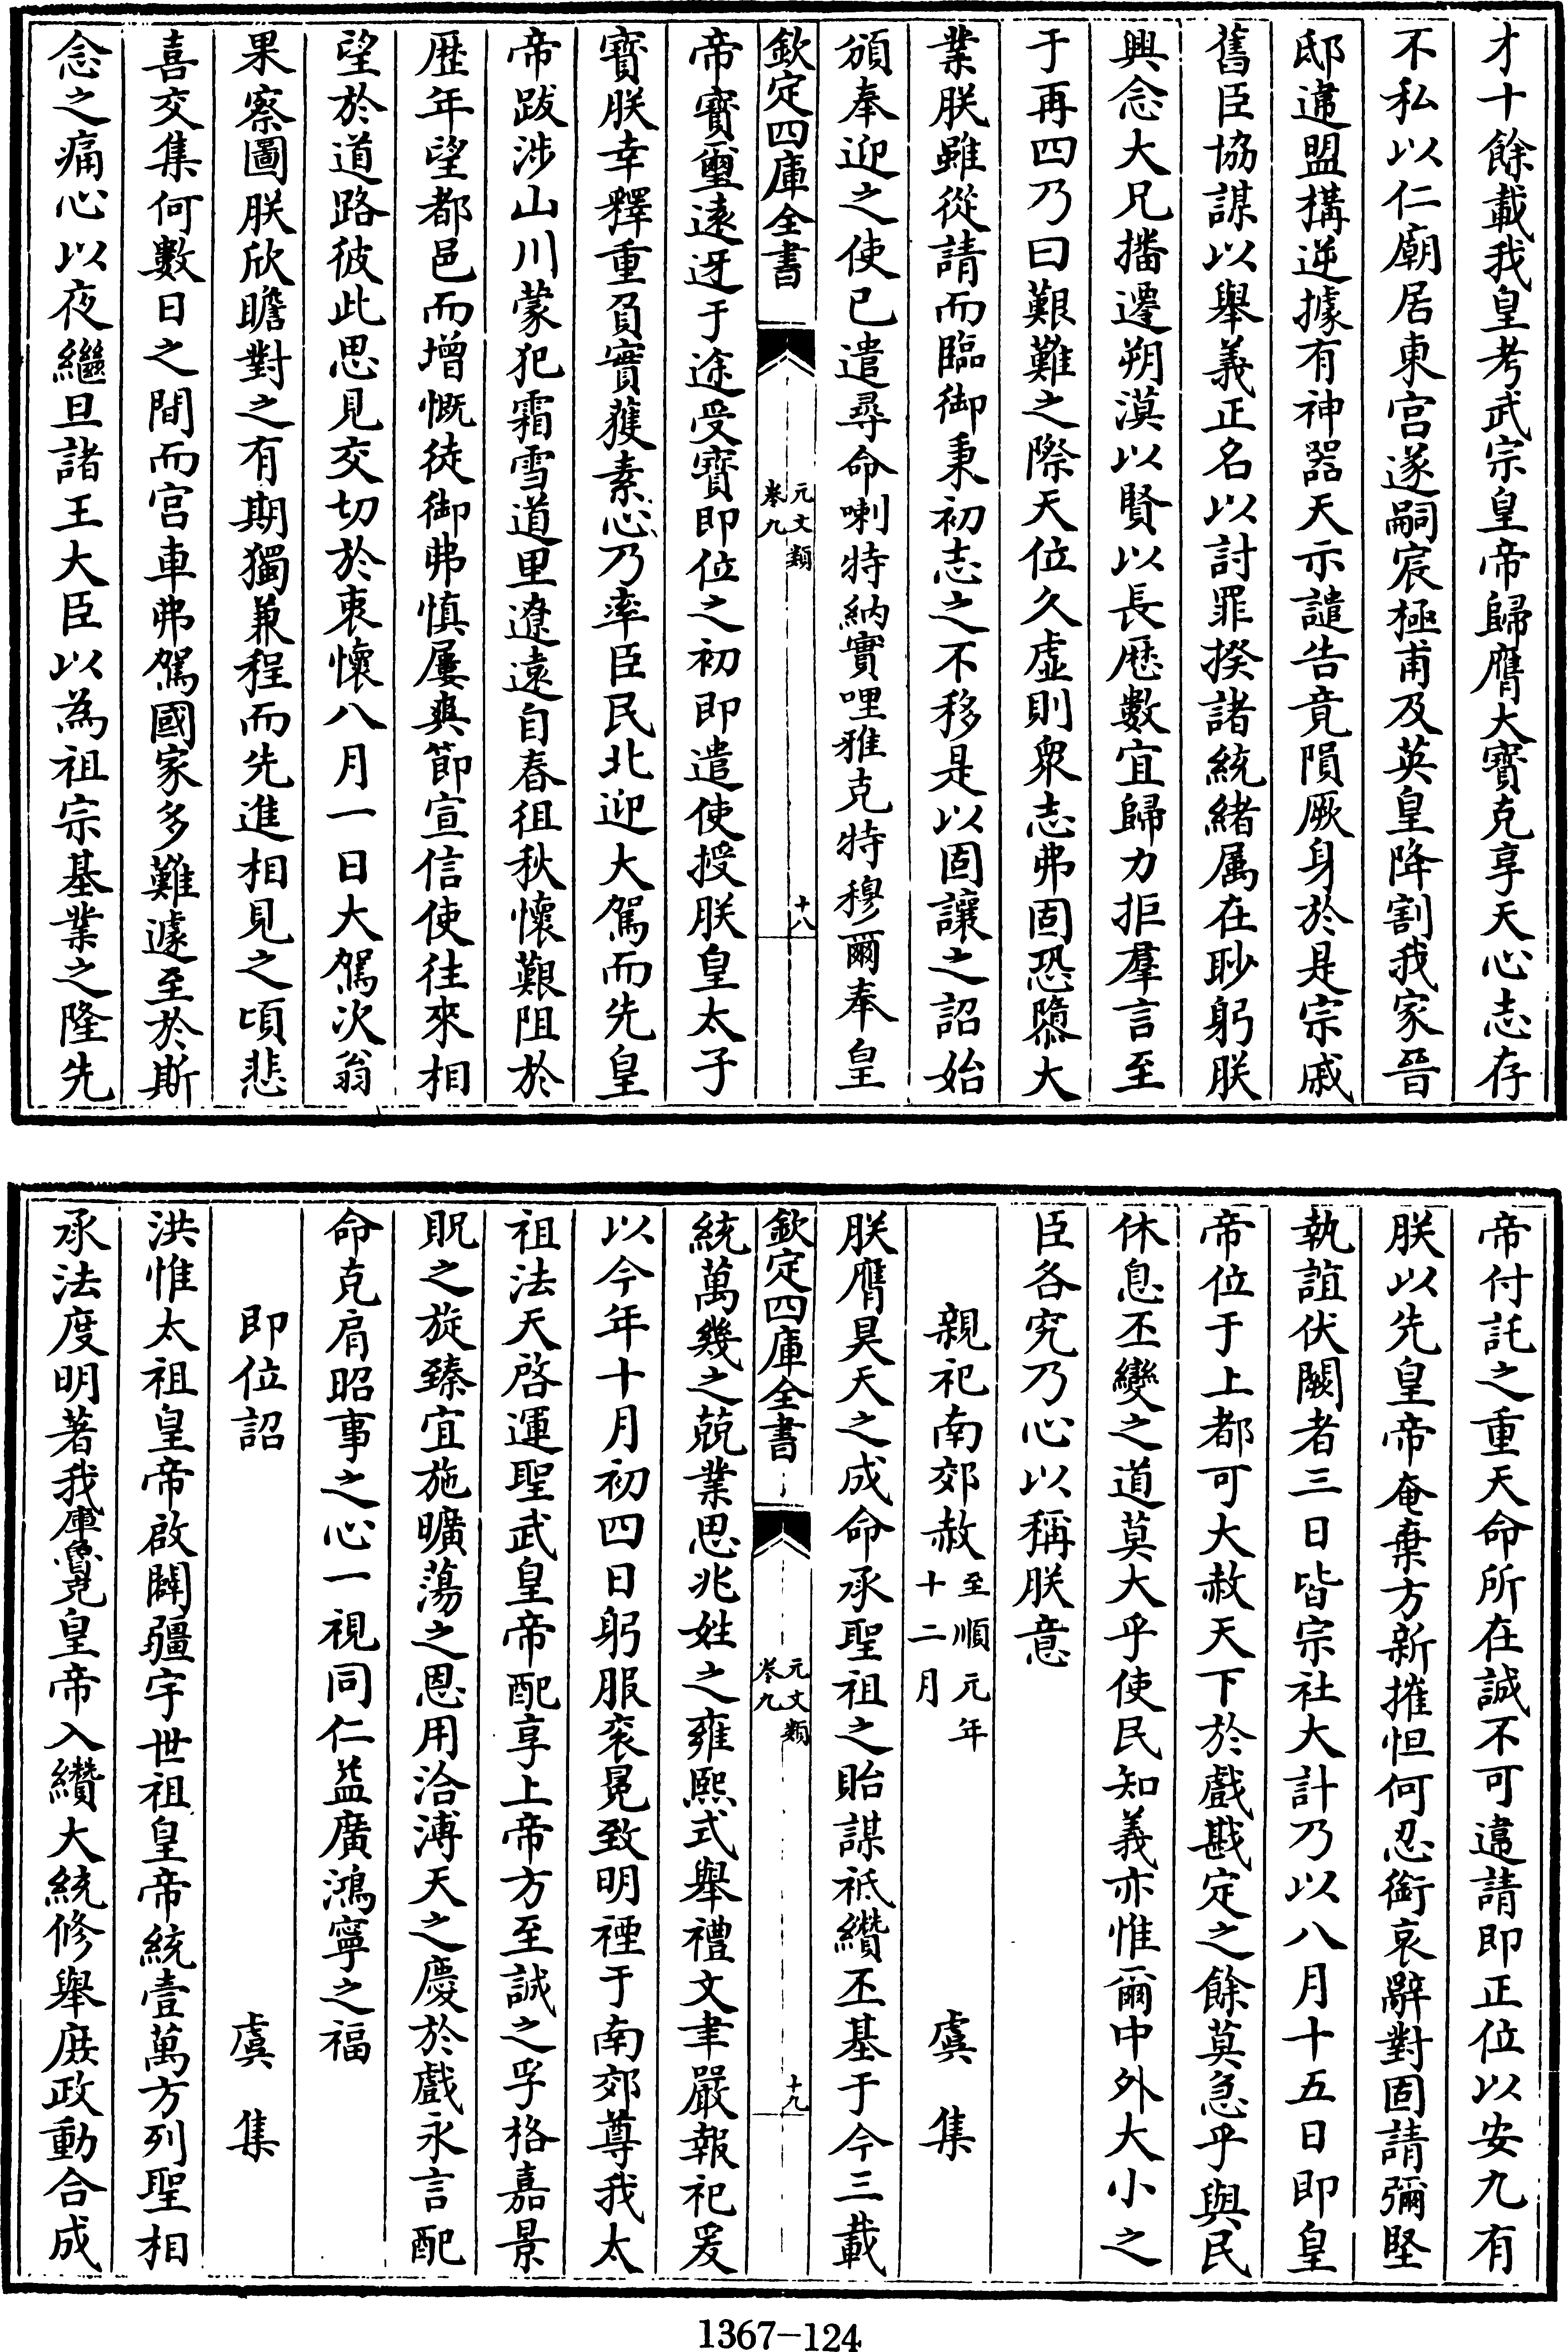 才十餘載我皇考武宗皇帝歸膺大寶克享天心志存
不私以仁廟居東宮遂嗣宸極甫及英皇降割我家晉
邸違盟構逆據有神器天示譴告竟隕厥身於是宗戚
舊臣協謀以舉義正名以討罪揆諸統緒属在眇躬朕
興念大兄播遷朔漠以賢以長厯數宜歸力拒羣言至
于再四乃曰艱難之際天位久虛則衆志弗固恐隳大
業朕雖從請而臨御秉初志之不移是以固讓之詔始
頒奉迎之使已遣尋命喇特納實哩雅克特穆爾奉皇
欽定四庫全書
元文類
卷九
十八
帝寶璽遠迓于途受寶即位之初即遣使授朕皇太子
寶朕幸釋重負實獲素心乃率臣民北迎大駕而先皇
帝跋涉山川蒙犯霜雪道里遼遠自春徂秋懷艱阻於
歴年望都邑而增慨徒御弗慎屢爽節宣信使往來相
望於道路彼此思見交切於衷懷八月一日大駕次翁
果察圖朕欣瞻對之有期獨兼程而先進相見之頃悲
喜交集何數日之間而宮車弗駕國家多難遽至於斯
念之痛心以夜繼旦諸王大臣以為祖宗基業之隆先
帝付託之重天命所在誠不可違請即正位以安九有
朕以先皇帝奄棄方新摧怛何忍銜哀辭對固請彌堅
執誼伏闕者三日皆宗社大計乃以八月十五日即皇
帝位于上都可大赦天下於戲戡定之餘莫急乎與民
休息丕變之道莫大乎使民知義亦惟爾中外大小之
臣各究乃心以稱朕意
親祀南郊赦 至順元年十二月 虞集
朕膺昊天之成命承聖祖之貽謀祗纘丕基于今三載
欽定四庫全書
元文類
卷九
十九
統萬幾之兢業思兆姓之雍熙式舉禮文聿嚴報祀爰
以今年十月初四日躬服衮冕致明禋于南郊尊我太
祖法天啓運聖武皇帝配享上帝方至誠之孚格嘉景
貺之旋臻宜施曠蕩之恩用洽溥天之慶於戲永言配
命克肩昭事之心一視同仁益廣鴻寧之福
即位詔 虞集
洪惟太祖皇帝啟闢疆宇世祖皇帝統壹萬方列聖相
承法度明著我庫魯克皇帝入纘大統修舉庶政動合成
1367-124